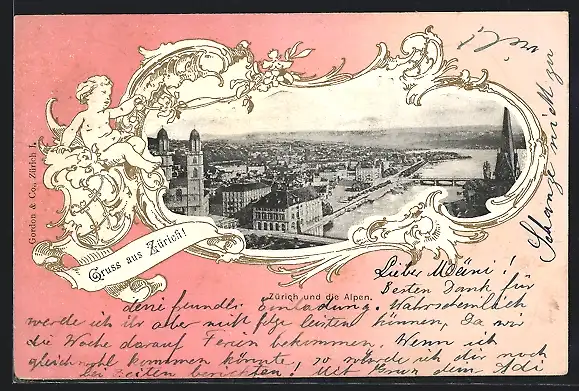 Gordon & Co., Zürich I.
Gruss aus Zürich!
Zürich und die Alpen.
Lieber Mäni!
Besten Dank für
deine freundl. Einladung. Wahrscheinlich
werde ich ihr aber nicht folge leisten können, da wir
die Woche darauf Ferien bekommen. Wenn ich
gleichwohl kommen könnte, so würde ich dir noch
bei Zeiten berichten! Mit Gruss dein Adi
Schange mich zu